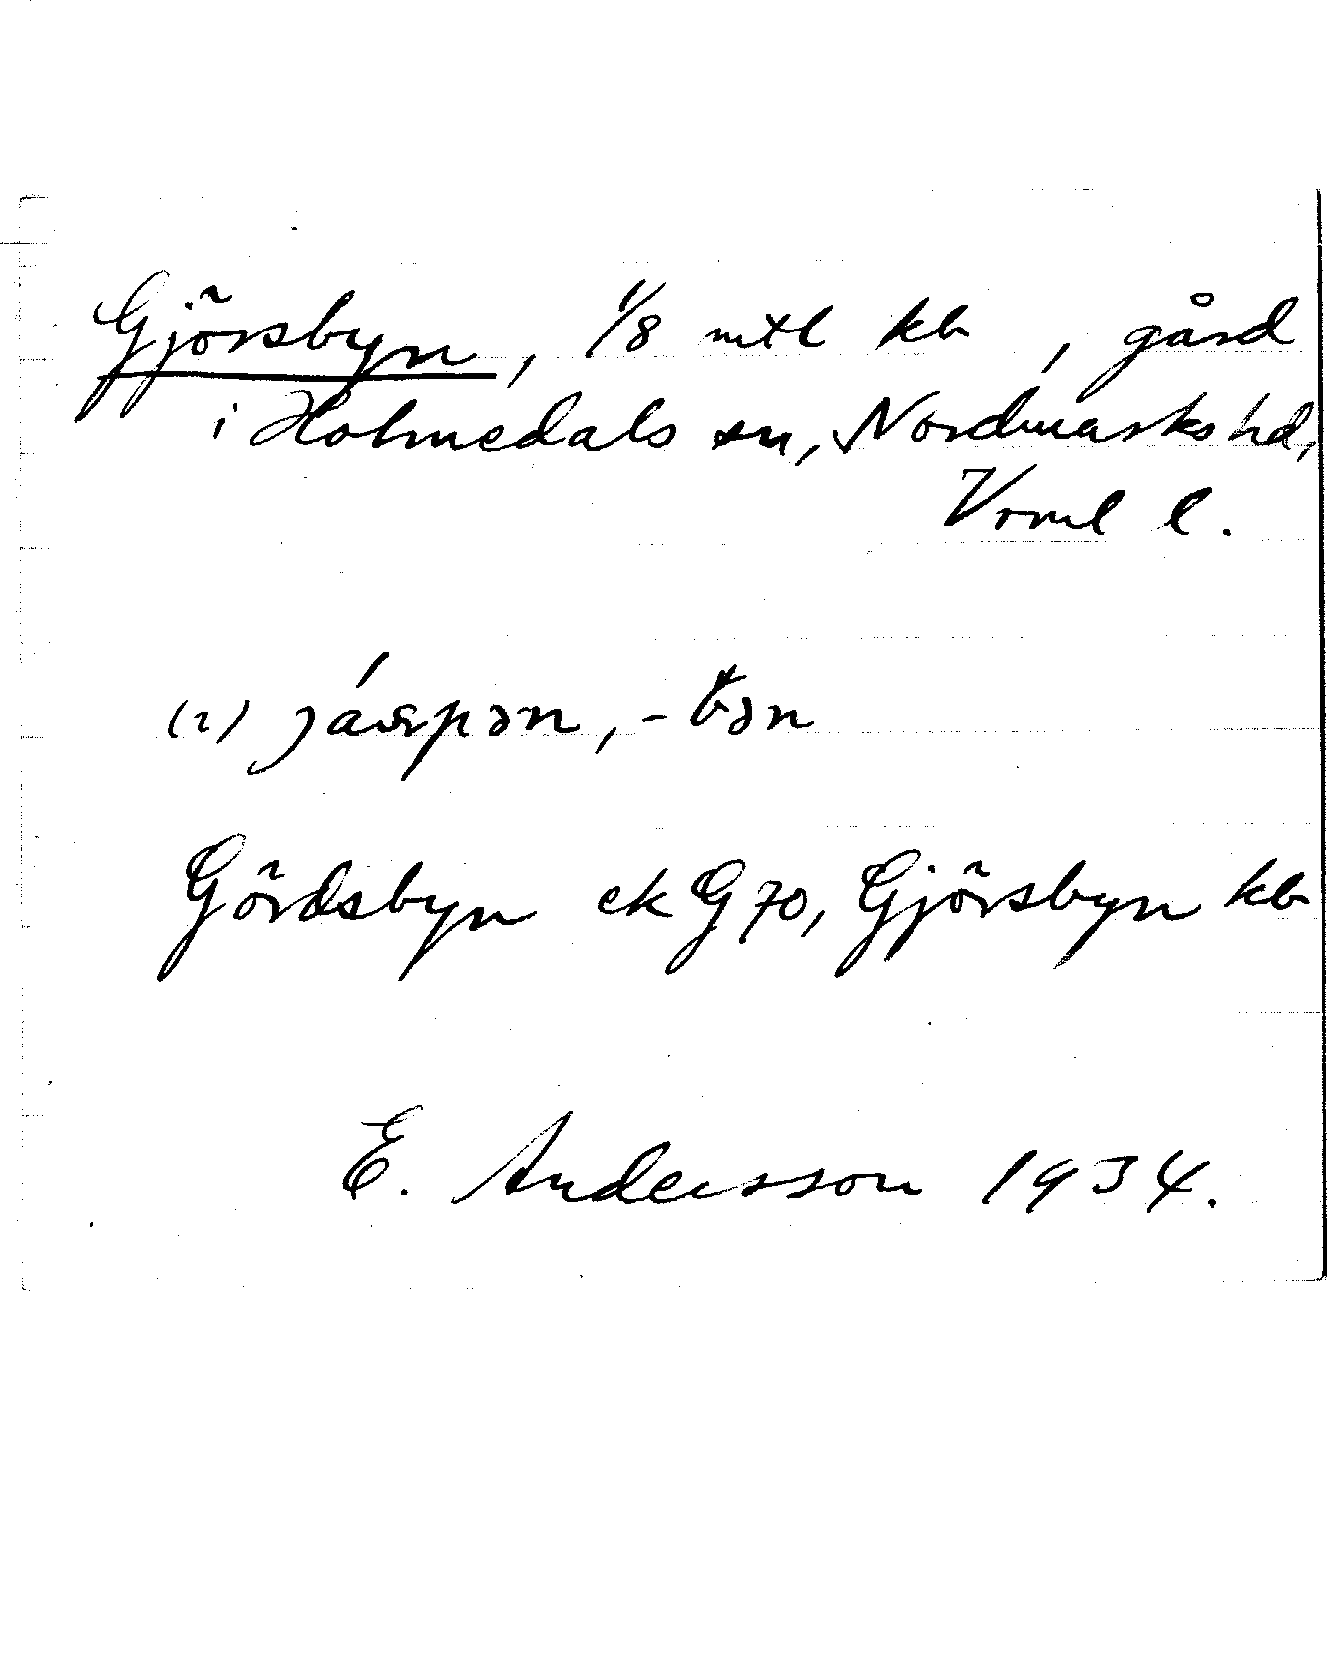 Gjörsbyn, 1/8 mtl kb, gård
i Holmedals sn, Nordmarks hd,
Vrml l.
(2)
Gördsbyn ek G 70, Gjörsbyn kb
E. Andersson 1934.